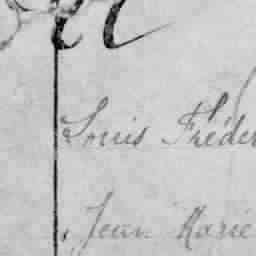 Louis Fréder
Jean Marie